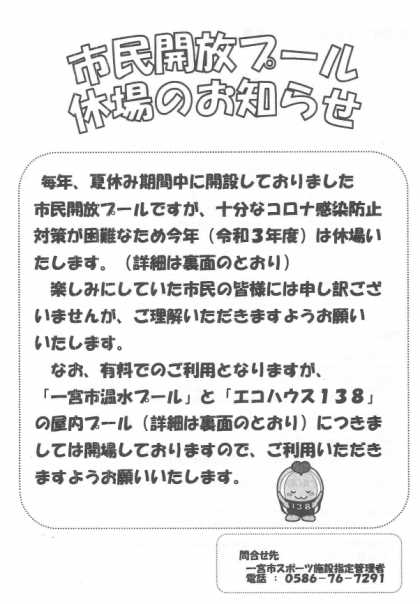 市民開放プール
休場のお知らせ
毎年、夏休み期間中に開設しておりました
市民開放プールですが、十分なコロナ感染防止
対策が困難なため今年（令和３年度）は休場い
たします。（詳細は裏面のとおり）
楽しみにしていた市民の皆様には申し訳ござ
いませんが、ご理解いただきますようお願い
いたします。
なお、有料でのご利用となりますが、
「一宮市温水プール」と「エコハウス１３８」
の屋内プール（詳細は裏面のとおり）につきま
しては開場しておりますので、ご利用いただき
ますようお願いいたします。
138
問合せ先
一宮市スポーツ施設指定管理者
電話 ： 0586-76-7291